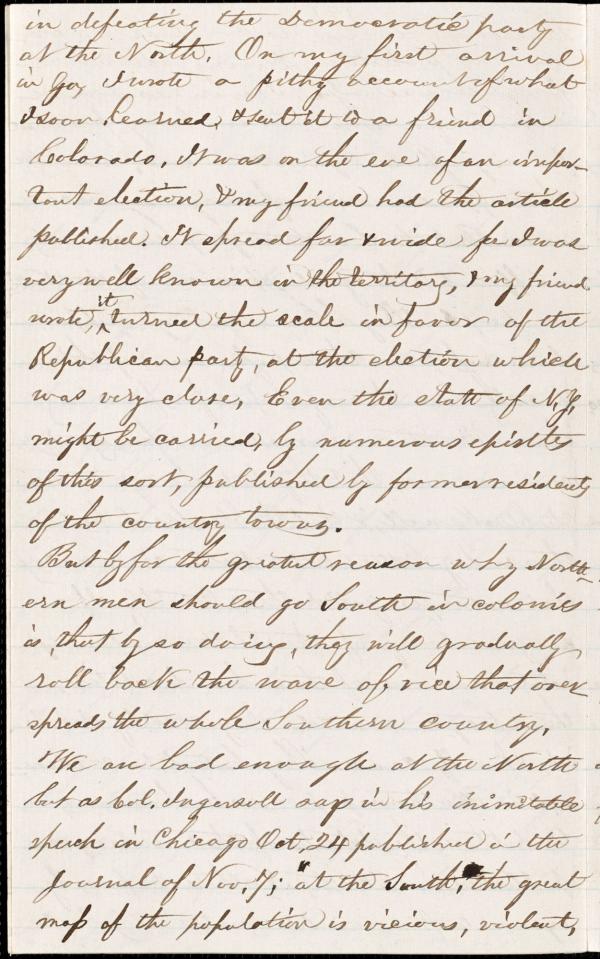 in defeating the Democratic party
at the North. On my first arrival
in Ga, I wrote a pithy account of what
I soon learned, & sent it to a friend in
Colorado. It was on the eve of an impor-
tant election, & my friend had the article
published. It spread far & wide for I was
very well known in the territory, & my friend
wrote, it turned the scale in favor of the
Republican party, at the election which
was very close. Even the state of N.Y.
might be carried, by numerous epistles
of this sort, published by former residents
of the country towns.
But by far the greatest reason why North-
ern men should go South in colonies
is, that by so doing, they will gradually
roll back the wave of vice that over-
spreads the whole Southern country.
We are bad enough at the North
but as Col. Ingersoll says in his inimitable
speech in Chicago Oct. 24 published in the
Journal of Nov. 7; "at the South, the great
mass of the population is vicious, violent,